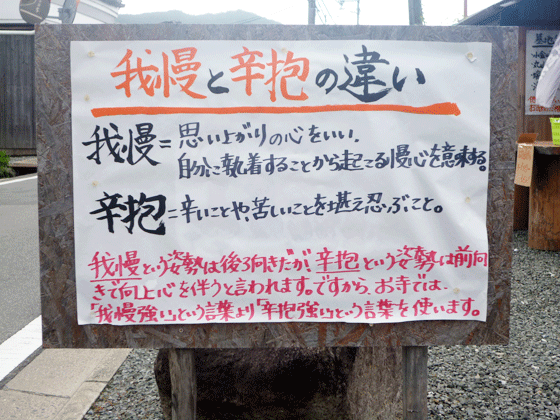 我慢と辛抱の違い
我慢=思い上がりの心をいい.
自分に執着することから起こる慢心を意味する。
辛抱=辛いことや、苦しいことを堪え忍ぶこと。
我慢という姿勢は後ろ向きだが、辛抱という姿勢は前向
きで向上心を伴うと言われます。ですから、お寺では、
「我慢強い」という言葉より「辛抱強い」という言葉を使います。